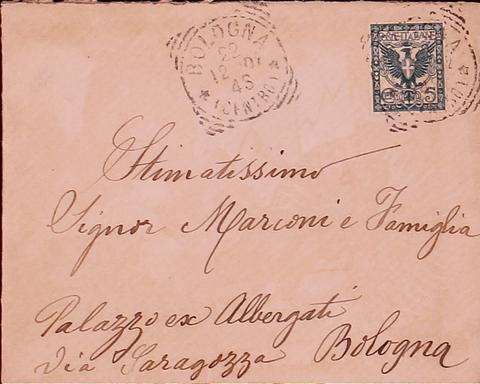 BOLOGNA
22
12
46
(CENTRO)
POSTE ITALIANE
CENT. 5
Stimatissimo
Signor Marconi e Famiglia
Palazzo ex Albergati
Via Saragozza Bologna